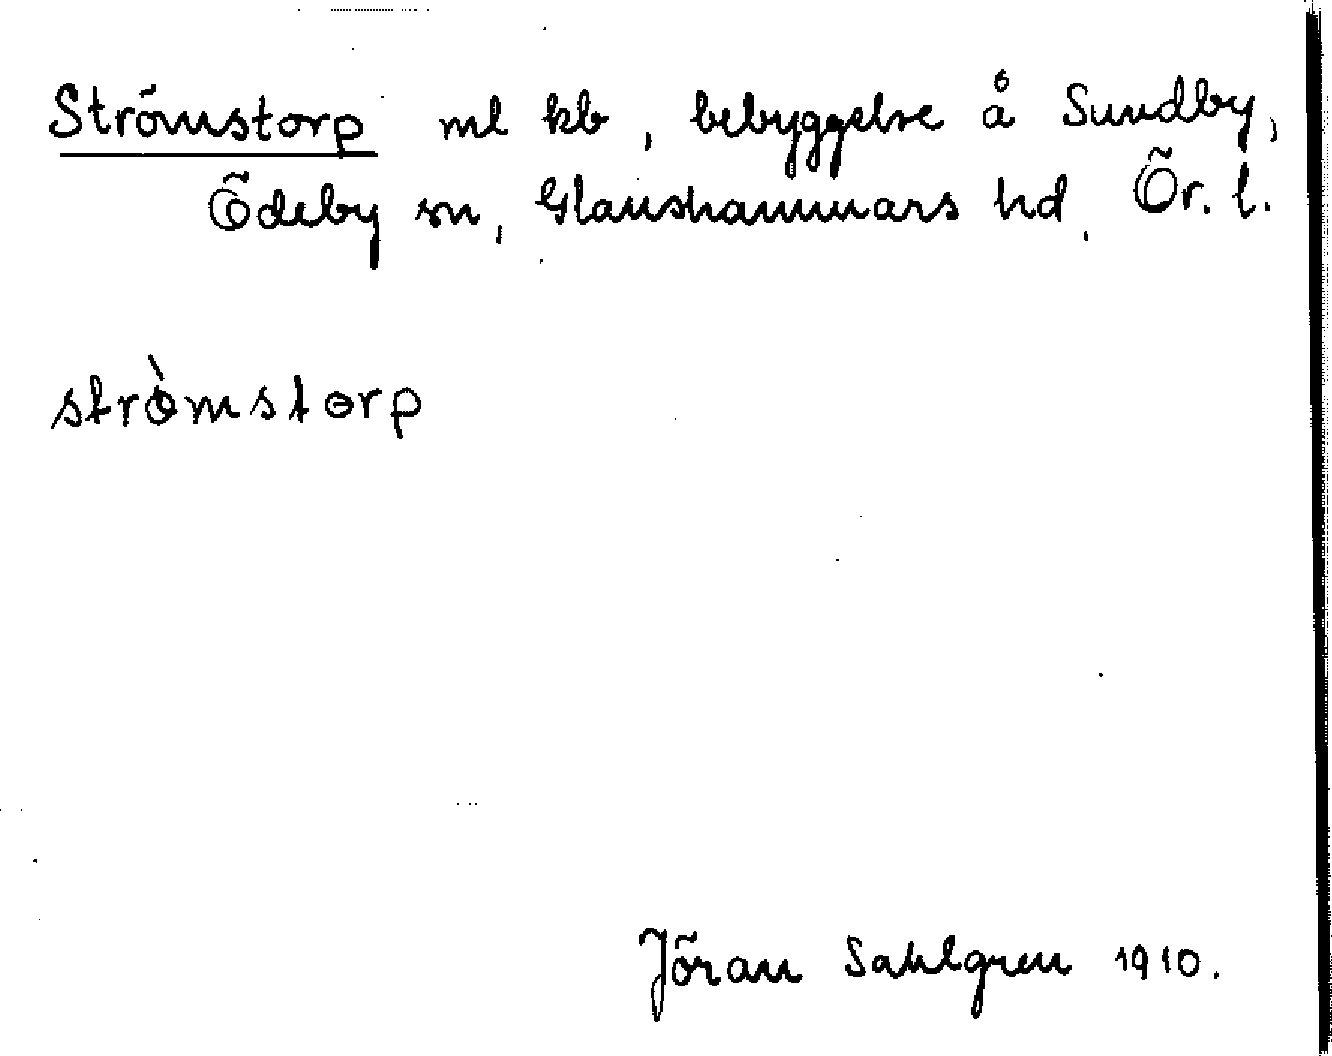 Strömstorp ml kb, bebyggelse å Sundby,
Ödeby sn, Glanshammars hd, Ör. l.
strömstorp
Jöran Sahlgren 1910.